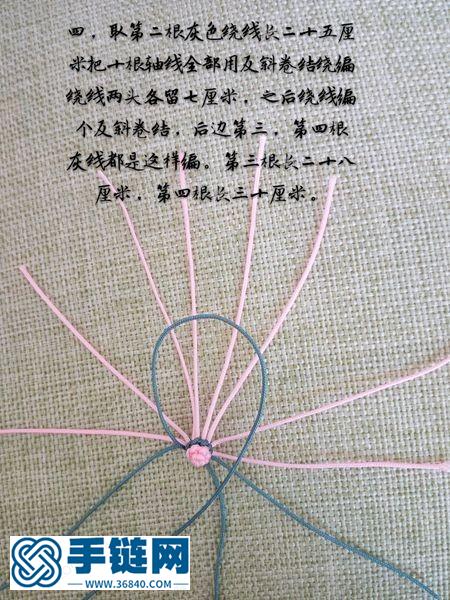 四，取第二根灰色绕线长二十五厘
米把十根轴线全部用反斜卷结绕编
绕线两头各留七厘米，之后绕线编
个反斜卷结，后边第三，第四根
灰线都是这样编。第三根长二十八
厘米，第四根长三十厘米。
手链网
WWW.36840.COM